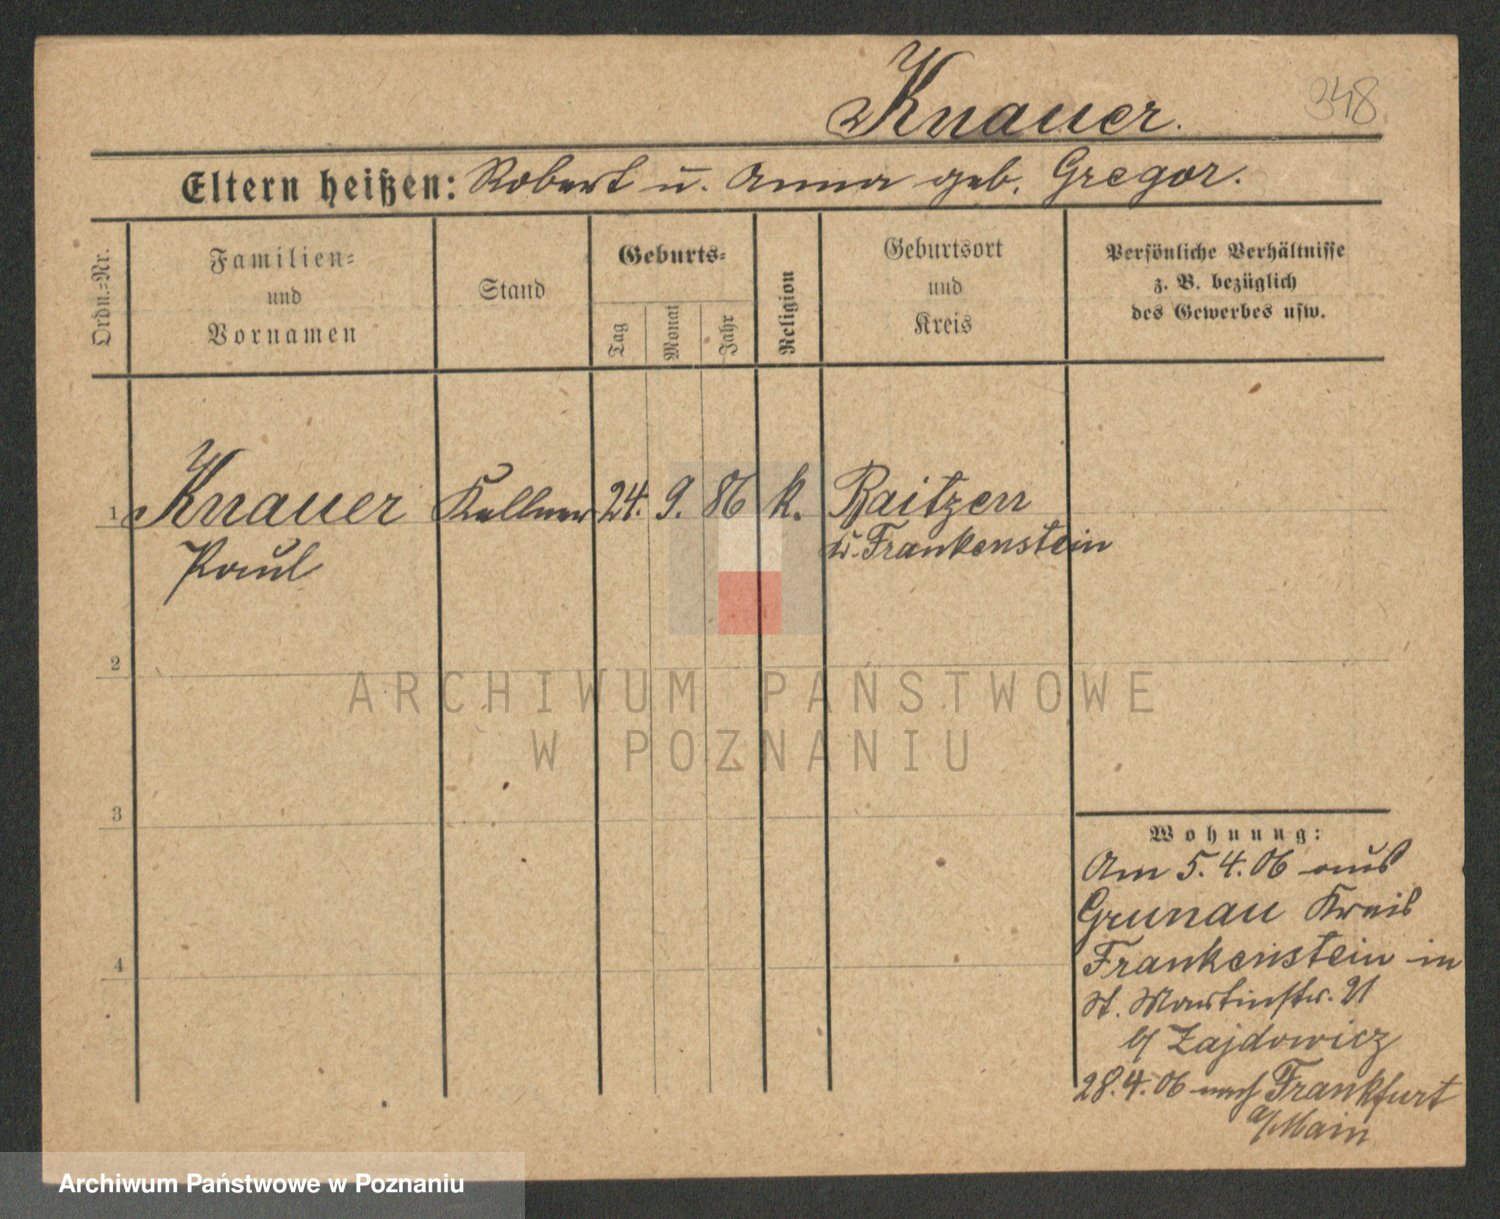 Knauer.
348
Eltern heißen: Robert u. Anna geb. Gregor.
Ordn.=Nr.
Familien=
und
Vornamen
Stand
Geburts=
Tag
Monat
Jahr
Religion
Geburtsort
und
Kreis
Persönliche Verhältnisse
z. B. bezüglich
des Gewerbes usw.
1 Knauer Kellner 24. 9. 86 k. Baitzen
Paul
Kr. Frankenstein
2
3
4
Wohnung:
Am 5.4.06 aus
Grunau Kreis
Frankenstein in
St. Martinstr. 21
b/ Zajdowicz
28.4.06 nach Frankfurt
a/Main
ARCHIWUM PAŃSTWOWE
W POZNANIU
Archiwum Państwowe w Poznaniu